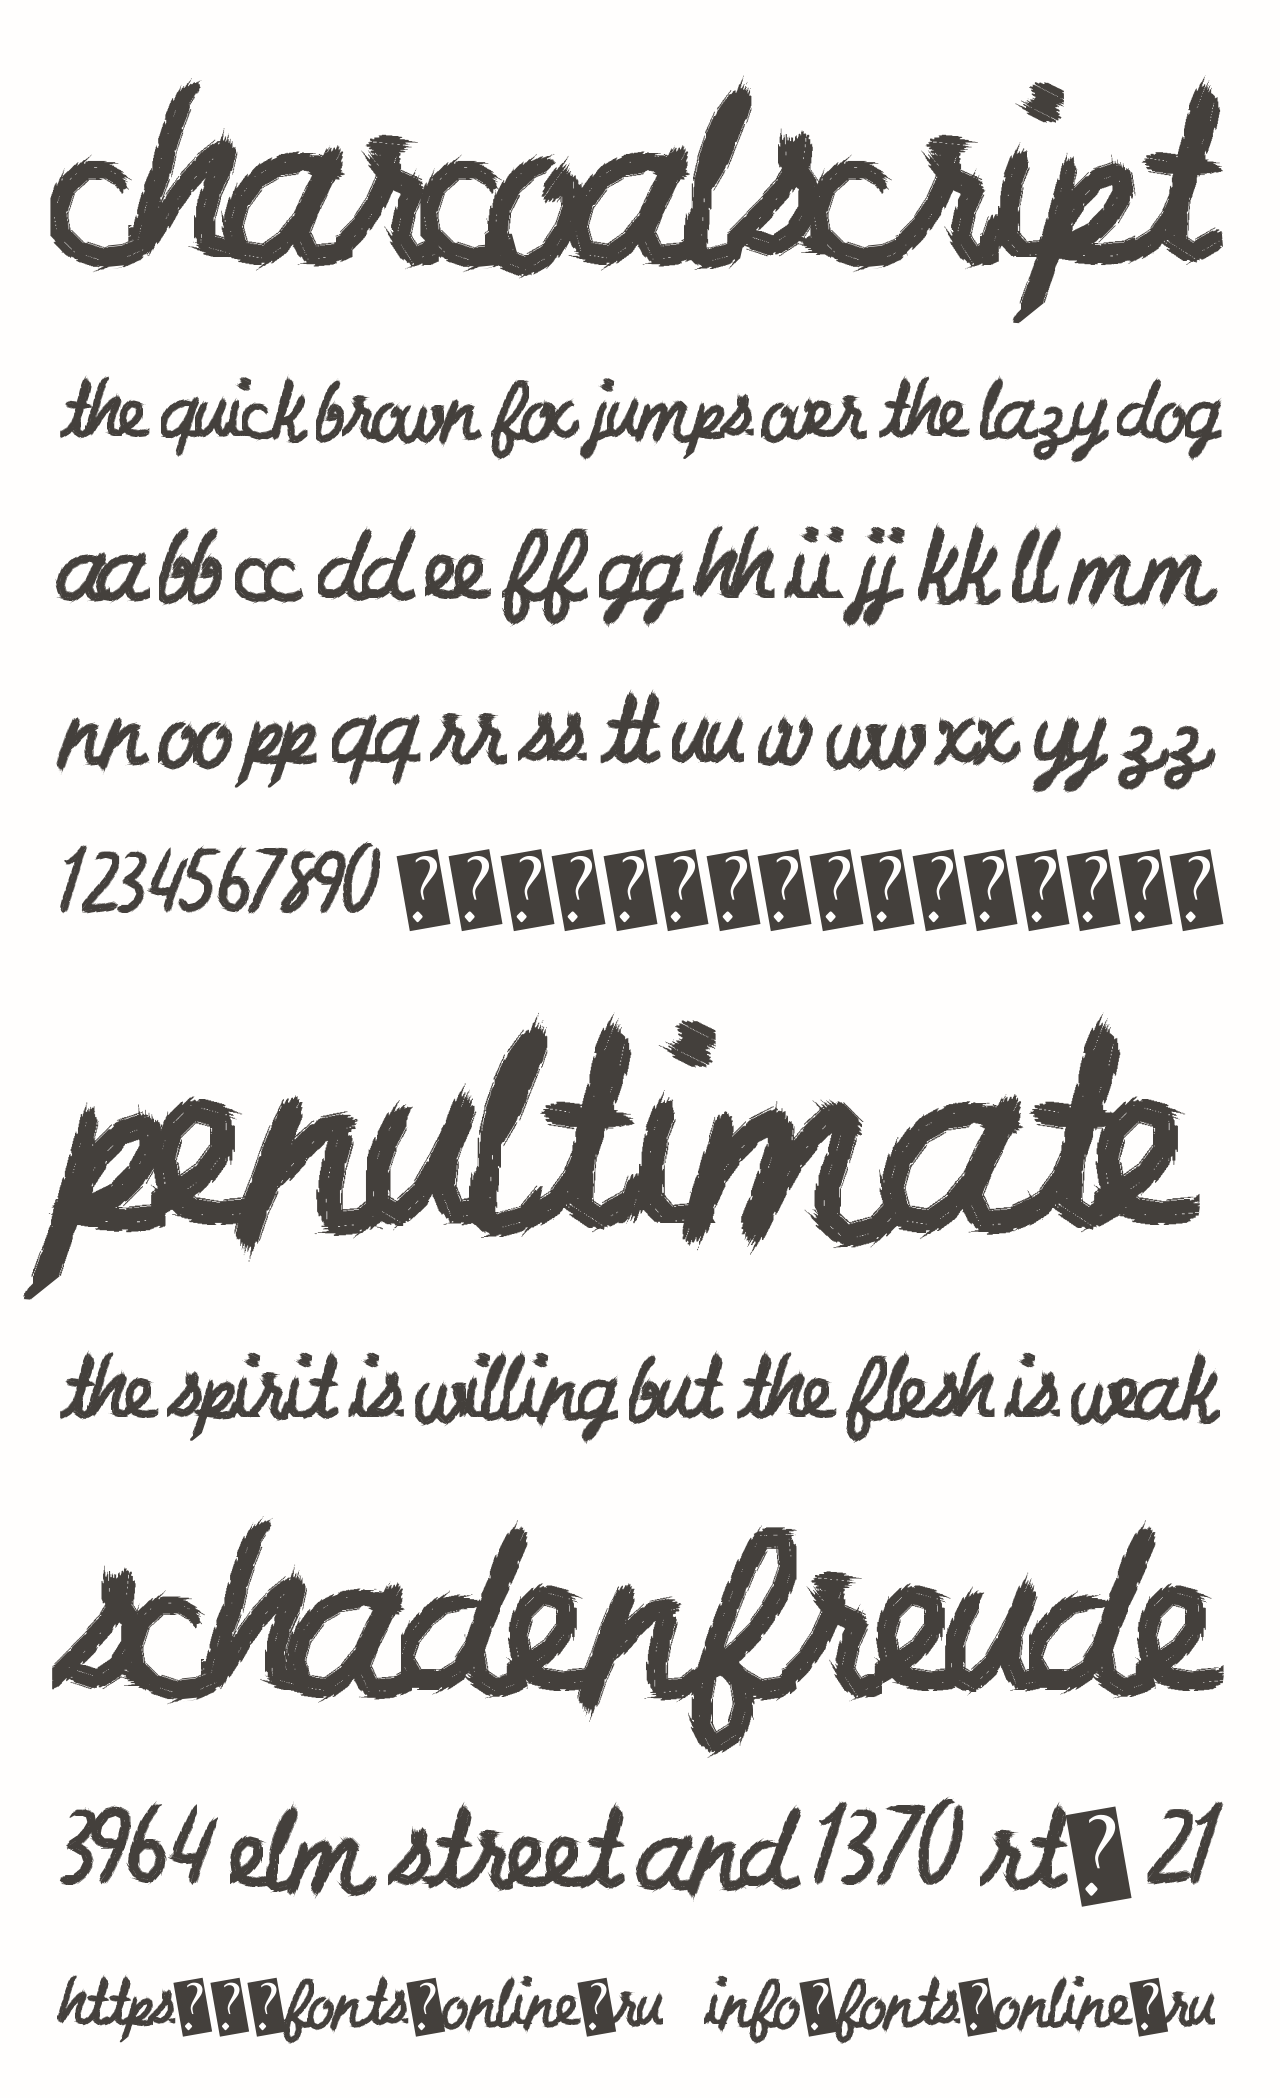 charcoalscript
the quick brown fox jumps over the lazy dog
aa bb cc dd ee ff gg hh ii jj kk ll mm
nn oo pp qq rr ss tt uu vv ww xx yy zz
1234567890 ????????????????
penultimate
the spirit is willing but the flesh is weak
schadenfreude
3964 elm street and 1370 rt? 21
https???fonts?online?ru info?fonts?online?ru